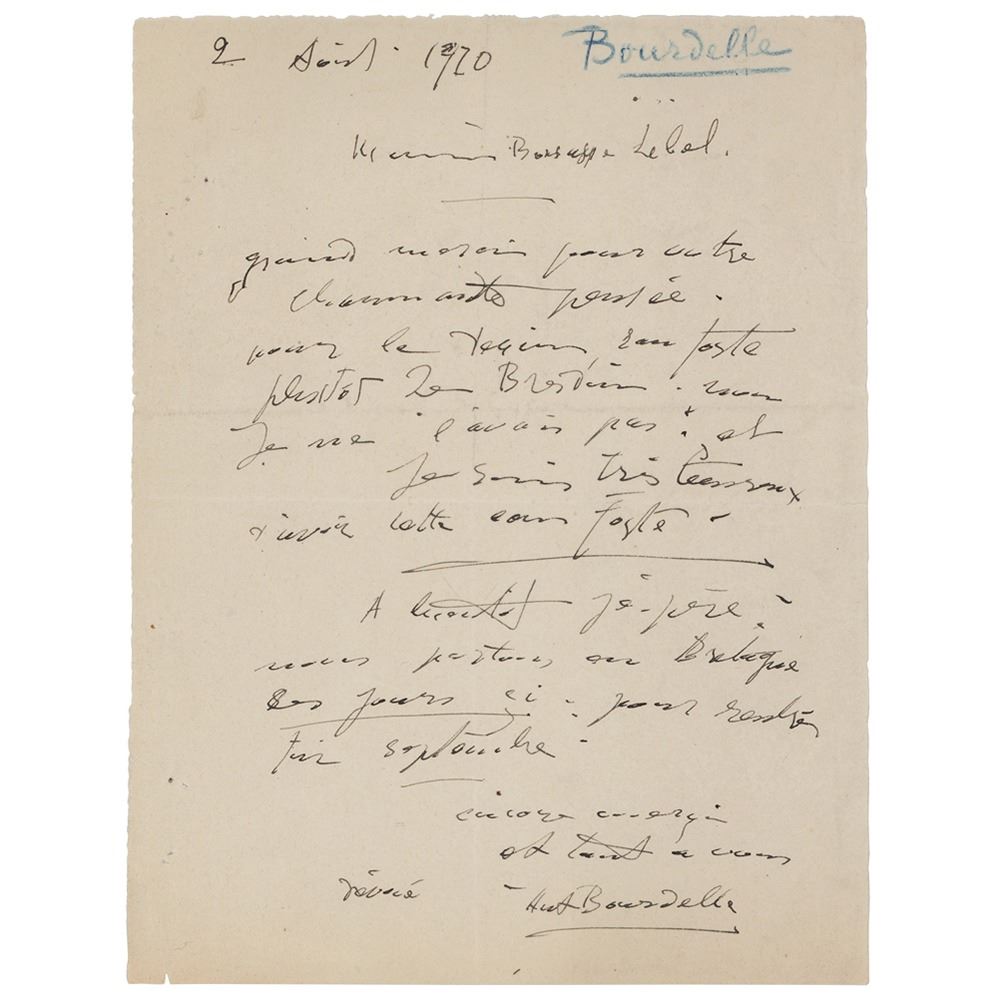 2 Août 1920 Bourdelle
Monsieur Lebel.
grand merci pour votre
charmante pensée.
pour le eau forte
plutôt de Bresdin. non
Je ne l'avais pas : et
Je suis très heureux
d'avoir cette eau forte -
A bientôt j'espère -
nous partons en Bretagne
ces jours ci - pour rentrer
fin septembre -
encore merci
et tout a vous
dévoué Ant Bourdelle